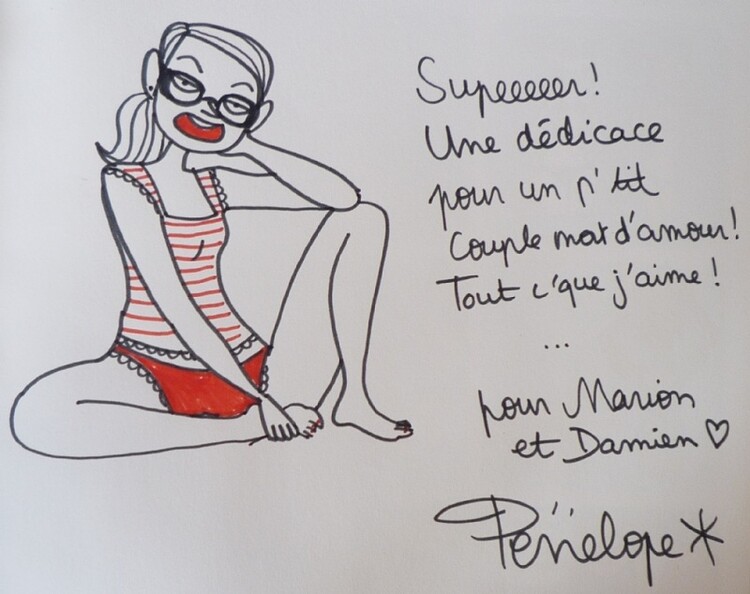 Supeeeeer!
Une dédicace
pour un p'tit
couple mort d'amour!
Tout c'que j'aime!
...
pour Marion
et Damien ♡
Pénélope*